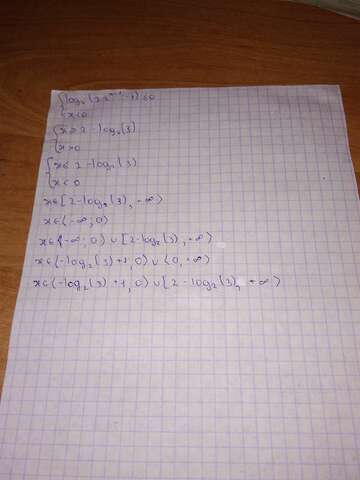 {log₂(3·2ˣ⁻¹-1)≤0
x<0
{x≥2-log₂(3)
x>0
{x≤2-log₂(3)
x<0
x∈[2-log₂(3),+∞)
x∈(-∞;0)
x∈(-∞;0)∪[2-log₂(3),+∞)
x∈(-log₂(3)+1,0)∪(0,+∞)
x∈(-log₂(3)+1,0)∪[2-log₂(3),+∞)